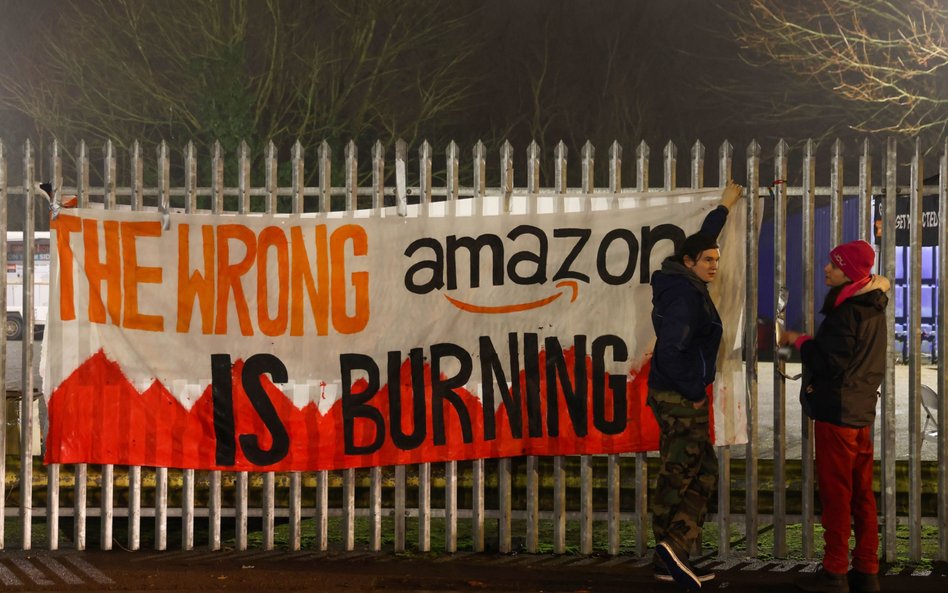 THE WRONG amazon
IS BURNING
GET